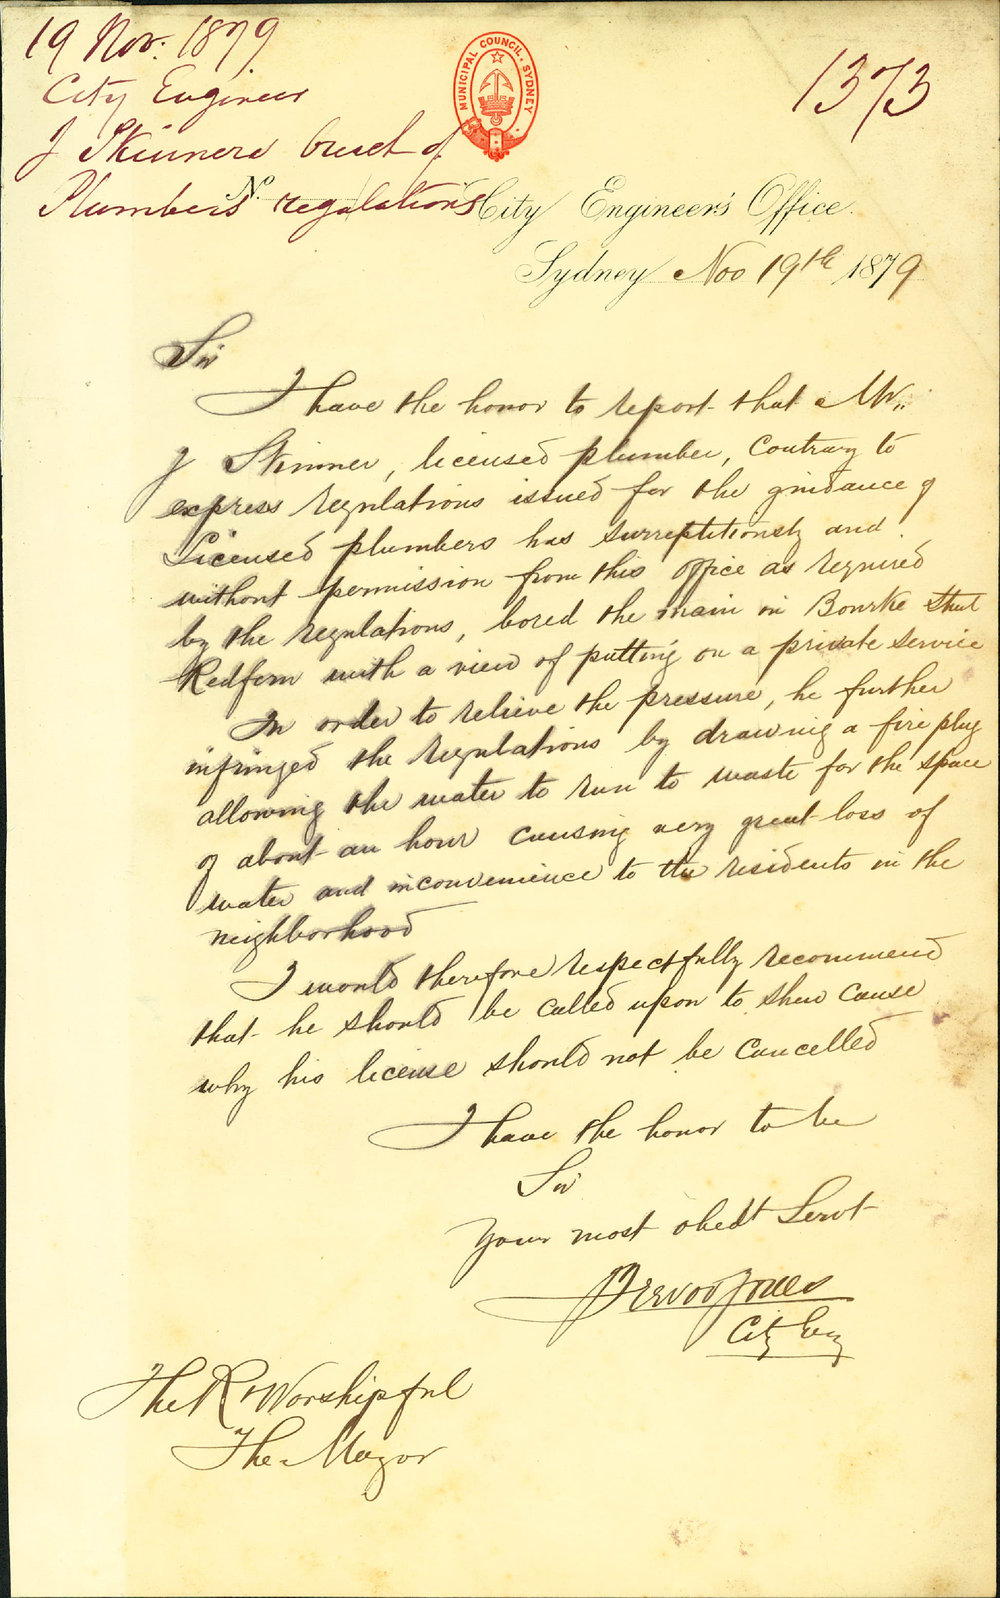 19 Nov. 1879
City Engineer
J Skinners breach of
Plumbers regulations
1373
MUNICIPAL COUNCIL. SYDNEY
No.
City Engineer's Office.
Sydney Nov 19th 1879
Sir
I have the honor to report that a Mr.
J Skinner, licensed plumber, contrary to
express regulations issued for the guidance of
Licensed plumbers has surreptitiously and
without permission from this office as required
by the regulations, bored the main in Bourke Street
Redfern with a view of putting on a private service
In order to relieve the pressure, he further
infringed the regulations by drawing a fire plug
allowing the water to run to waste for the space
of about an hour causing very great loss of
water and inconvenience to the residents in the
neighborhood
I would therefore respectfully recommend
that he should be called upon to shew cause
why his license should not be cancelled
I have the honor to be
Sir
Your most obedt Servt
Trevor Jones
City Eng
The Rt Worshipful
The Mayor